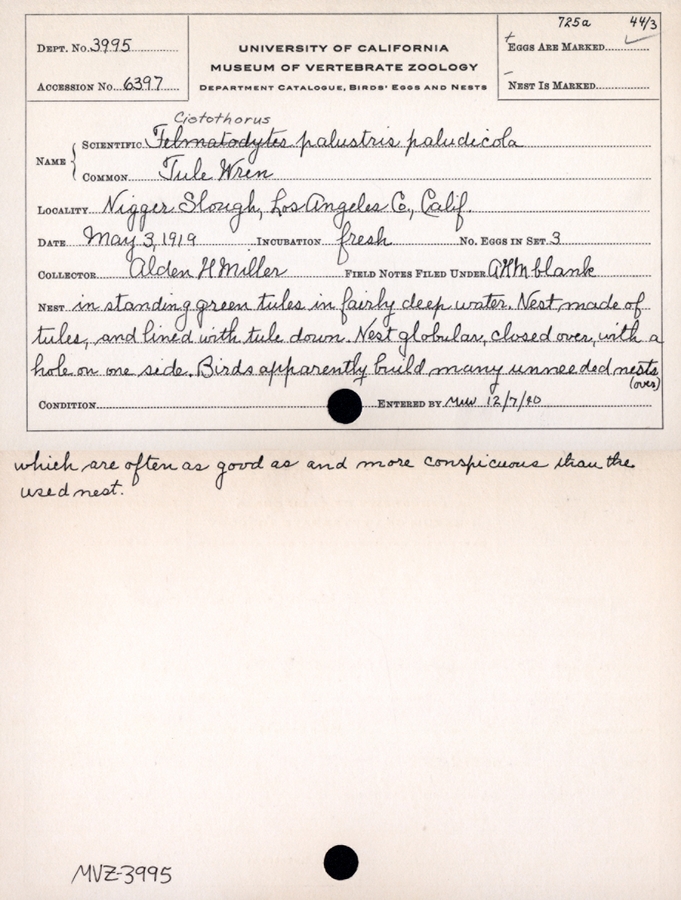 725a 44/3
DEPT. No. 3995
ACCESSION No. 6397
UNIVERSITY OF CALIFORNIA
MUSEUM OF VERTEBRATE ZOOLOGY
DEPARTMENT CATALOGUE, BIRDS' EGGS AND NESTS
+ EGGS ARE MARKED ✓
– NEST IS MARKED
Cistothorus
NAME { SCIENTIFIC Telmatodytes palustris paludicola
COMMON Tule Wren
LOCALITY Nigger Slough, Los Angeles Co., Calif.
DATE May 3, 1919 INCUBATION fresh No. EGGS IN SET 3
COLLECTOR Alden H Miller FIELD NOTES FILED UNDER AHM blank
NEST in standing green tules in fairly deep water. Nest made of
tules, and lined with tule down. Nest globular, closed over, with a
hole on one side. Birds apparently build many unneeded nests
(over)
CONDITION ENTERED BY MWW 12/7/40
which are often as good as and more conspicuous than the
used nest.
MVZ-3995